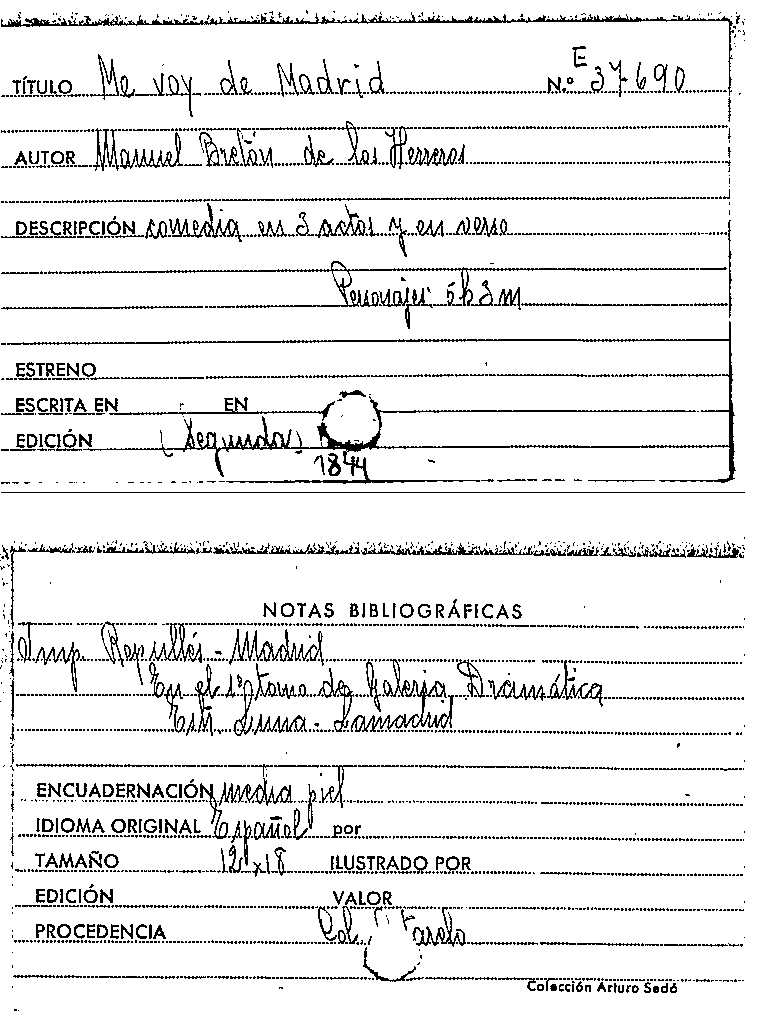 TÍTULO Me voy de Madrid N.º E 37-690
AUTOR Manuel Bretón de los Herreros
DESCRIPCIÓN comedia en 3 actos y en verso
Personajes: 5h 3m
ESTRENO
ESCRITA EN EN
EDICIÓN (Segunda) 1844
NOTAS BIBLIOGRÁFICAS
Imp. Repullés - Madrid
En el tomo de Galeria Dramática
Luna - Lamadrid
ENCUADERNACIÓN media piel
IDIOMA ORIGINAL Español por
TAMAÑO 12 x 18 ILUSTRADO POR
EDICIÓN VALOR
PROCEDENCIA Col.
Colección Arturo Sedó